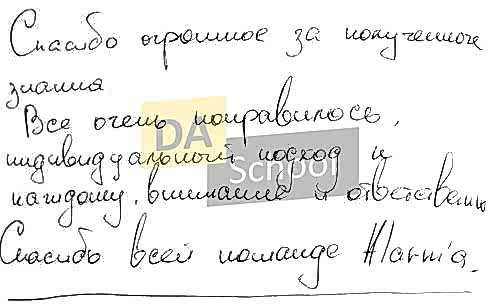 Спасибо огромное за полученные
знания
Все очень понравилось,
индивидуальный подход к
каждому, внимание и ответственн
Спасибо всей команде
DA
School